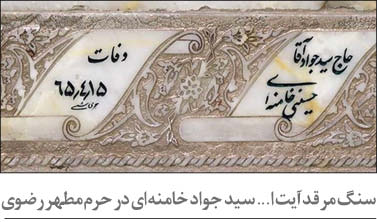 حاج سید جواد آقا
حسینی خامنه‌ای
وفات
۶۵٫۴٫۱۵
سنگ مرقد آیت‌ا... سید جواد خامنه‌ای در حرم مطهر رضوی